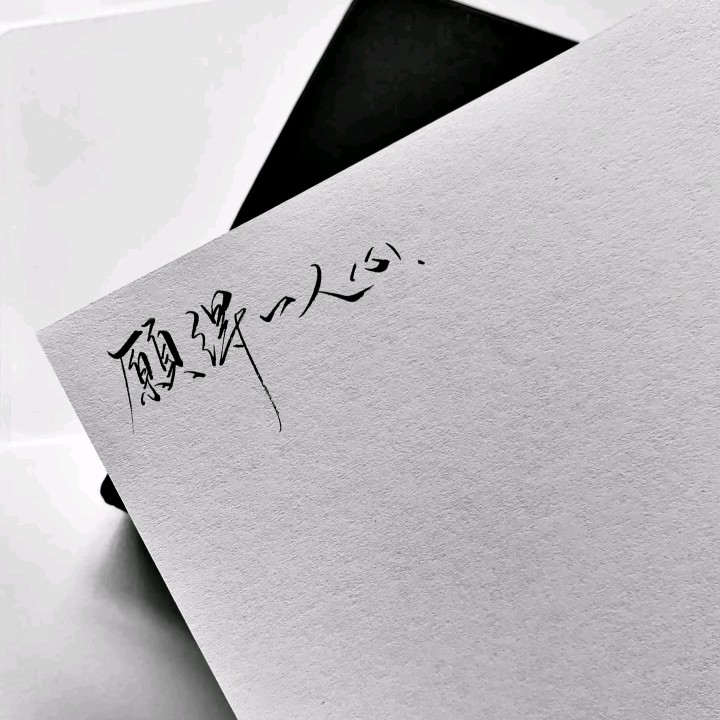 願得一人心.